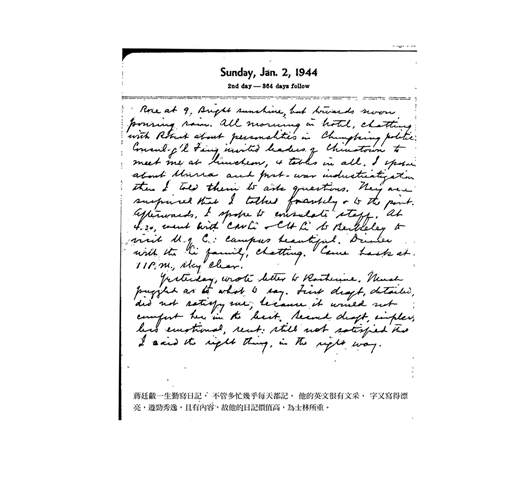 Sunday, Jan. 2, 1944
2nd day — 364 days follow
Rose at 9, Bright sunshine, but towards noon
pouring rain. All morning in hotel, chatting
with about personalities in Chungking politics.
Consul-g'l Feng invited leaders of Chinatown to
meet me at luncheon, 4 tables in all. I spoke
about and post-war industrialization
then I told them to ask questions. They are
surprised that I talked frankly & to the point.
Afterwards, I spoke to consulate staff. At
4.30, went with & Li to Berkeley to
visit U. of C.: campus beautiful. Dinner
with the Li family, chatting. Came back at
11 P.M., sky clear.
Yesterday, wrote letter to Katherine. Much
puzzled as to what to say. First draft, detailed,
did not satisfy me, because it would not
comfort her in the least. Second draft, simpler,
less emotional, sent: still not satisfied that
I said the right thing, in the right way.
蔣廷黻一生勤寫日記，不管多忙幾乎每天都記。他的英文很有文采，字又寫得漂
亮，遒勁秀逸，且有內容，故他的日記價值高，為士林所重。